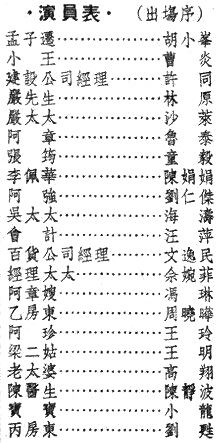 ·演員表·（出場序）
孟子遷……胡小峯
小王……曹炎
建設公司經理……許同
嚴先生……林原
嚴太太……沙萊
阿章……魯泰
張筠……童毅
李佩華……陳娟娟
阿強……劉仁傑
吳太太……海濤
會計……汪萍
百貨公司經理……文逸民
經理太太……余婉菲
阿章嫂……馮琳
乙房東……周曉曄
阿珍……王玲
梁二姑……王明
老太婆……高翔
陳醫生……陳靜波
寶寶……小龍
丙房東……劉甦